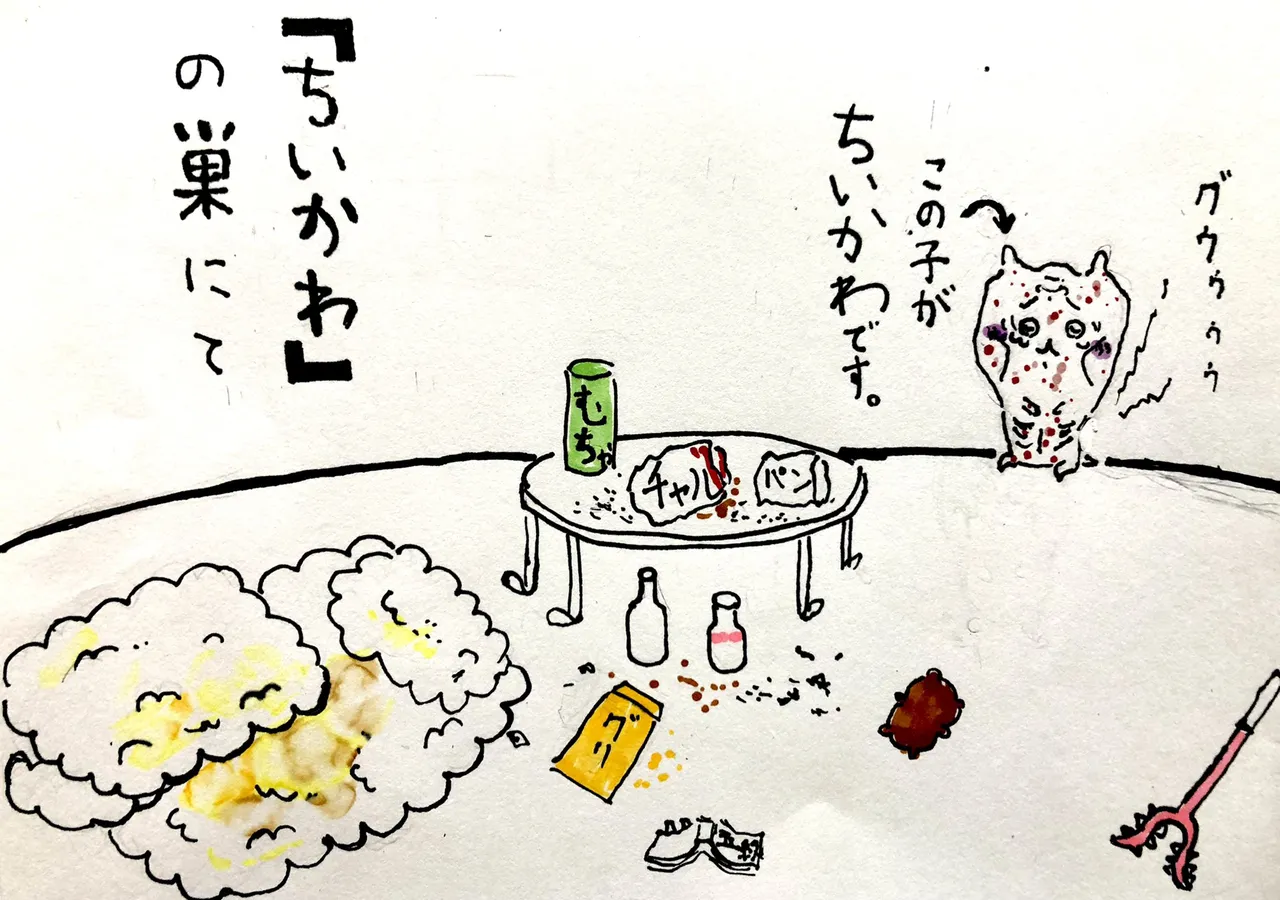 グウゥゥゥ
この子が
ちいかわです。
『ちいかわ』
の巣にて
むちゃ
チャル
パン
グリ